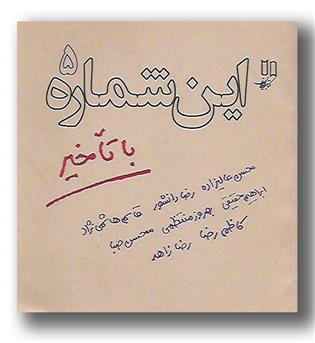 ۵
این شماره
با تأخیر
محسن عالیزاده رضا دانشور قاسم هاشمی نژاد
ابراهیم حقیقی بهروز منتظمی محسن صبا
کاظم رضا رضا زاهد